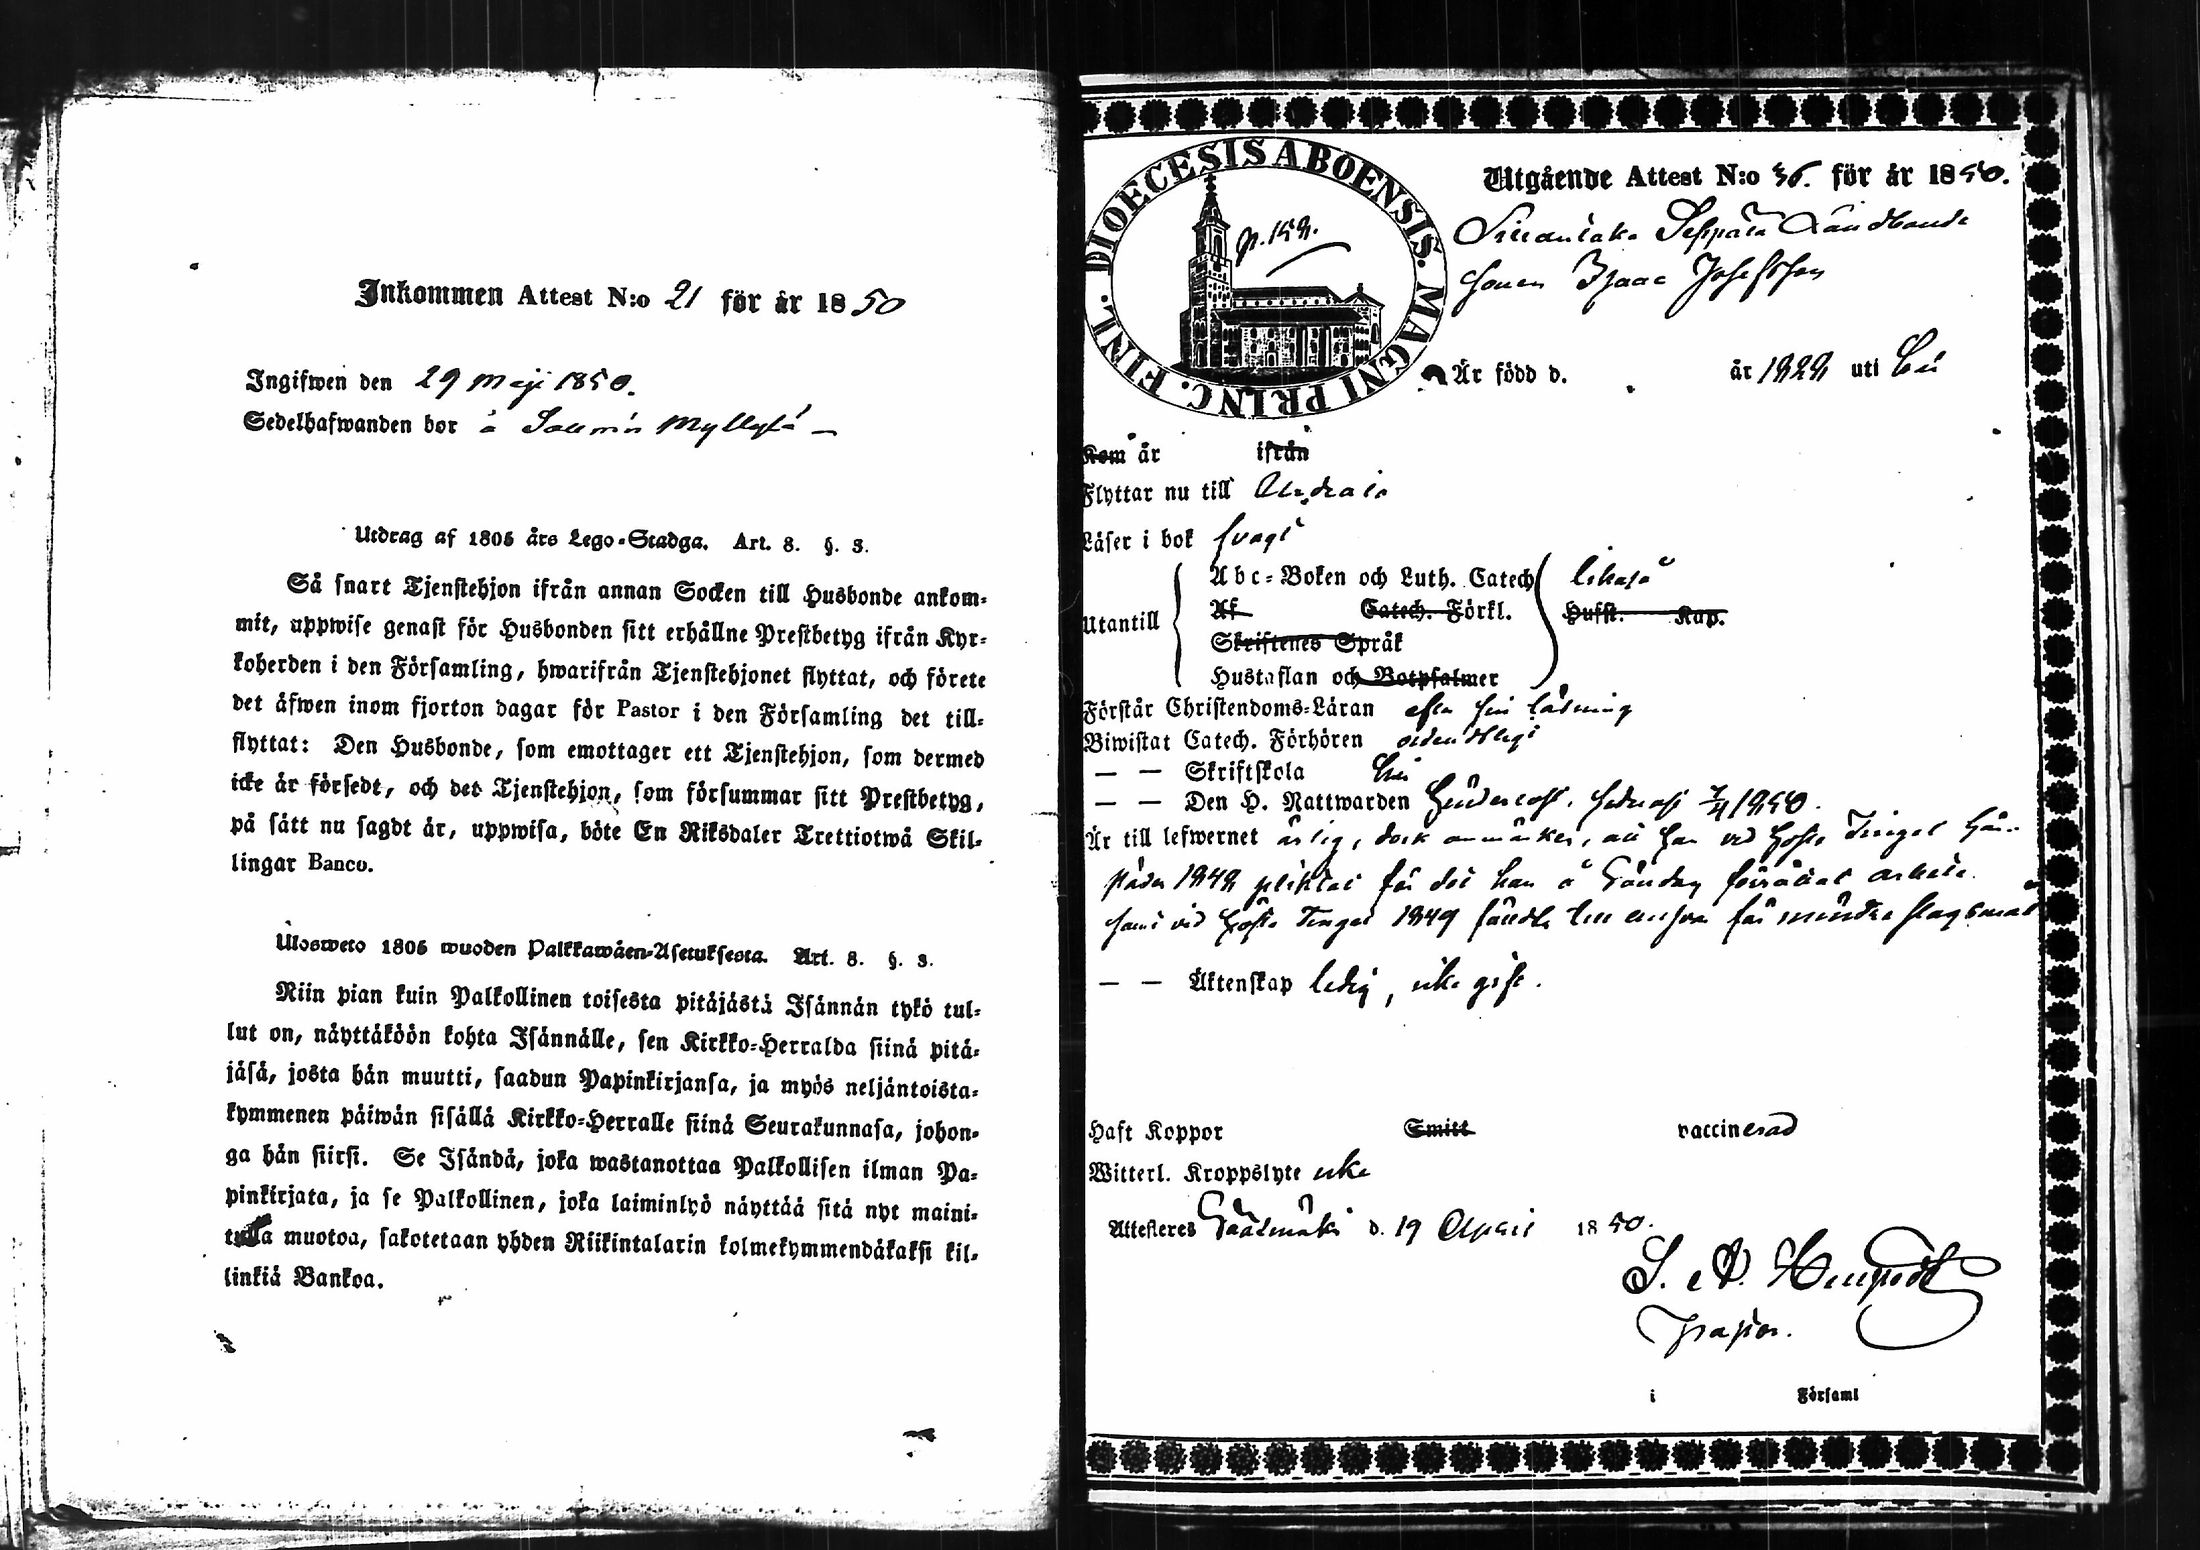 Inkommen Attest N:o 21 för år 1850
Ingifwen den 29 Maji 1850.
Sedelhafwanden bor å
Utdrag af 1805 års Lego-Stadga. Art. 8. §. 3.
Så snart Tjenstehjon ifrån annan Socken till Husbonde ankom-
mit, uppwise genast för Husbonden sitt erhållne Prestbetyg ifrån Kyr-
koherden i den Församling, hwarifrån Tjenstehjonet flyttat, och förete
det åfwen inom fjorton dagar för Pastor i den Församling det till-
flyttat: Den Husbonde, som emottager ett Tjenstehjon, som dermed
icke är försedt, och det Tjenstehjon, som försummar sitt Prestbetyg,
på sätt nu sagdt är, uppwisa, böte En Riksdaler Trettiotwå Skil-
lingar Banco.
Ulosweto 1805 wuoden Palkkawäen-Asetuksesta. Art. 8. §. 3.
Niin pian kuin Palkollinen toisesta pitäjästä Isännän tykö tul-
lut on, näyttäköön kohta Isännälle, sen Kirkko-Herralda siinä pitä-
jäsä, josta hän muutti, saadun Papinkirjansa, ja myös neljäntoista-
kymmenen päiwän sisällä Kirkko-Herralle siinä Seurakunnasa, johon-
ga hän siirsi. Se Isändä, joka wastanottaa Palkollisen ilman Pa-
pinkirjata, ja se Palkollinen, joka laiminlyö näyttää sitä nyt maini-
tulla muotoa, sakotetaan yhden Riikintalarin kolmekymmendäkaksi kil-
linkiä Bankoa.
DIOECESIS ABOENSIS. MAGNI PRINC. FINL.
Utgående Attest N:o 36. för år 1850.
Seppälä Landbonde
sonen Isaac Josefsson
Är född d. år 1828 uti
Kom år ifrån
Flyttar nu till
Läser i bok svagt
Utantill
Abc-Boken och Luth. Catech likaså
Af Catech. Förkl. Hufst. Kap.
Skriftenes Språk
Hustaflan och Botpsalmer
Förstår Christendoms-Läran efter sin läsning
Biwistat Catech. Förhören ordentligt
— — Skriftskola
— — Den H. Nattwarden 1850.
Är till lefwernet ärlig, dock anmärkes, att han vid Höste Tinget
1848 pliktat för det han å Söndag förrättat arbete
samt vid Höste Tinget 1849 för mindre slagsmål
— — Äktenskap ledig, icke gift.
Haft Koppor Smitt vaccinerad
Witterl. Kroppslyte icke
Attesteres Sääksmäki d. 19 April 1850.
Pastor.
i Församl